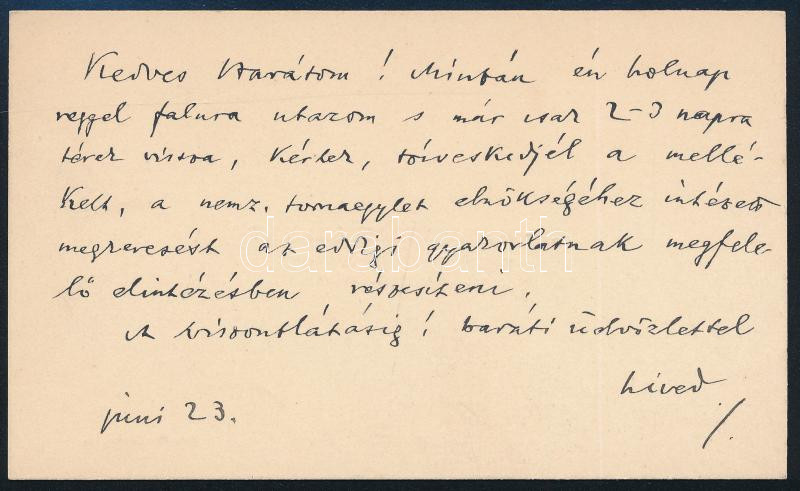 Kedves Barátom! Miután én holnap
reggel falura utazom s már csak 2-3 napra
térek vissza, kérlek, szíveskedjél a mellé-
kelt, a nemz. tornaegylet elnökségéhez intézett
megkeresést az eddigi gyakorlatnak megfele-
lő elintézésben részesíteni.
A viszontlátásig! baráti üdvözlettel
híved
juni 23.
darabanth